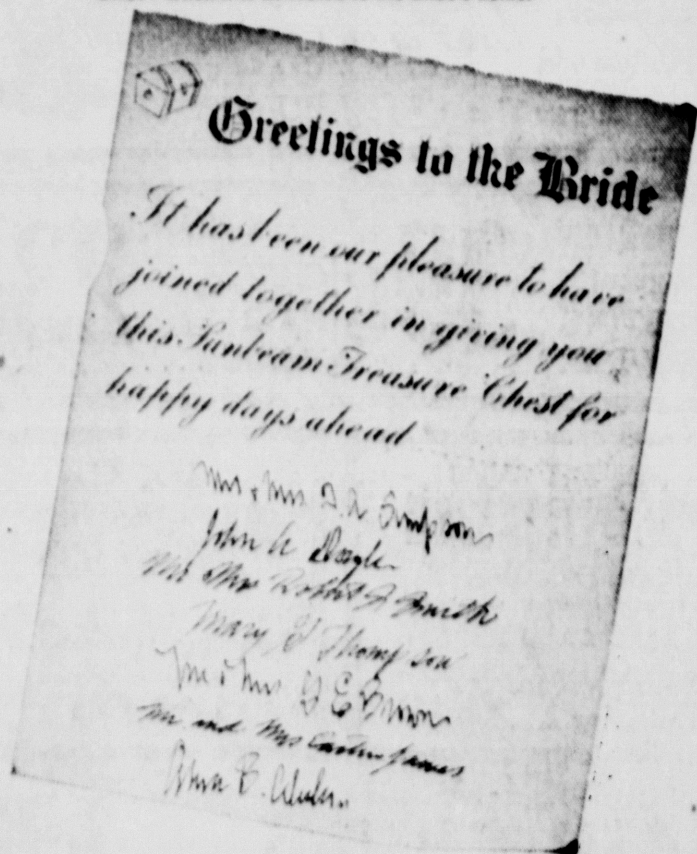 Greetings to the Bride
It has been our pleasure to have
joined together in giving you
this Sunbeam Treasure Chest for
happy days ahead
Mr & Mrs D. A. Simpson
John A Doyle
Mr Mrs Robert J Smith
Mary G Thompson
Mr & Mrs G E Brown
Mr. and Mrs Carter James
B.